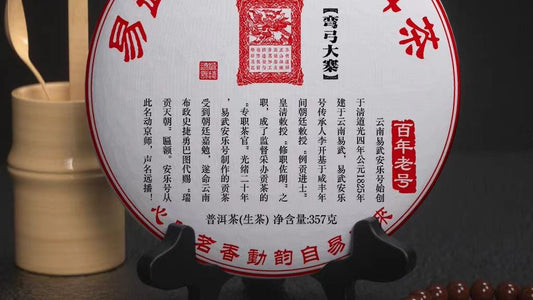 易武
茶
【弯弓大寨】
百年老号
云南易武安乐号始创
于清道光四年公元1825年
建于云南易武，易武安乐
号传承人李开基于咸丰年
间朝廷敕授“例贡进士”
皇清敕授“修职佐郎”之
职，成了监督采办贡茶的
“专职茶官”光绪二十年
，易武安乐号制作的贡茶
受到朝廷嘉勉，遂命云南
布政史捷勇巴图代赐“瑞
贡天朝”匾额。安乐号从
此名动京师，声名远播！
普洱茶(生茶) 净含量:357克
火茗香動韵自易乐